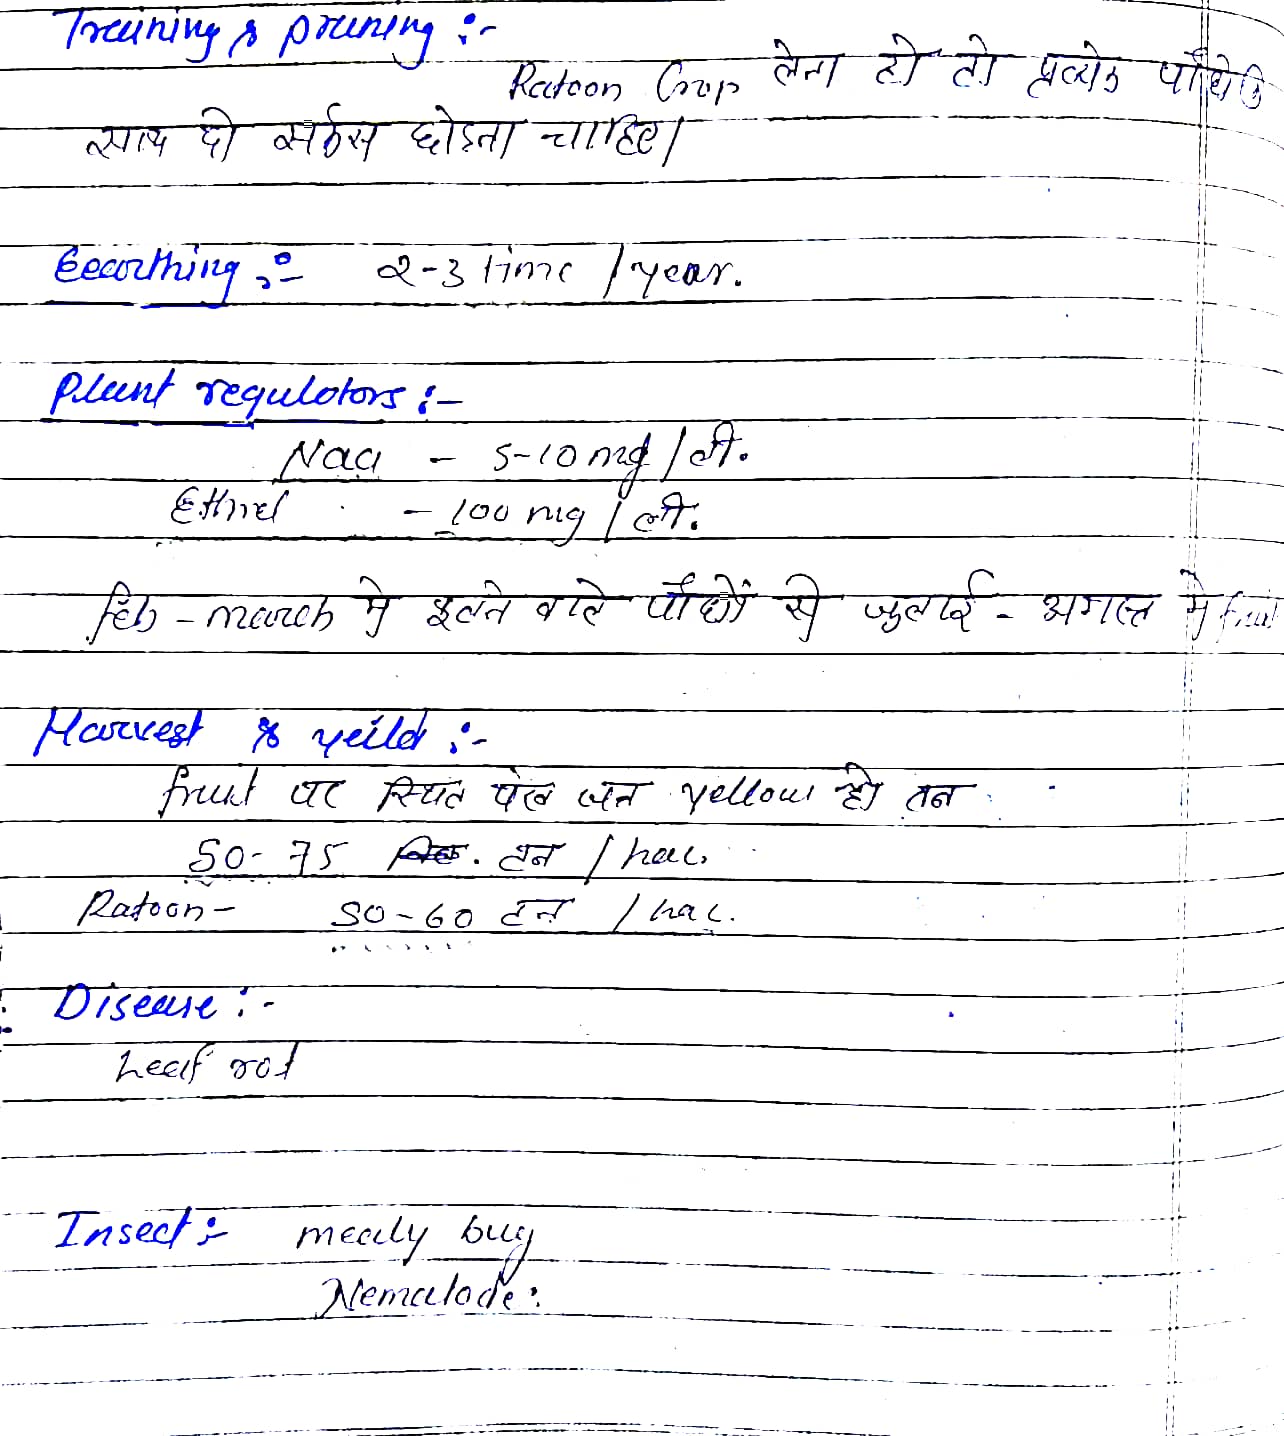 Training & pruning :-
Ratoon Crop लेना हो तो प्रत्येक पौधे के
साथ दो सर्कस छोडना चाहिए।
Eearthing :- 2-3 time / year.
Plant regulators :-
Naa - 5-10 mg / ली.
Ethrel - 100 mg / ली.
feb - march मे वाले पौधों से जुलाई - अगस्त मे fruit
Harvest & yeild :-
fruit पर स्थित पंख जब yellow हो तब
50-75 टन / hac.
Ratoon - 50-60 टन / hac.
Disease :-
Leaf rot
Insect :- mealy bug
Nematode.